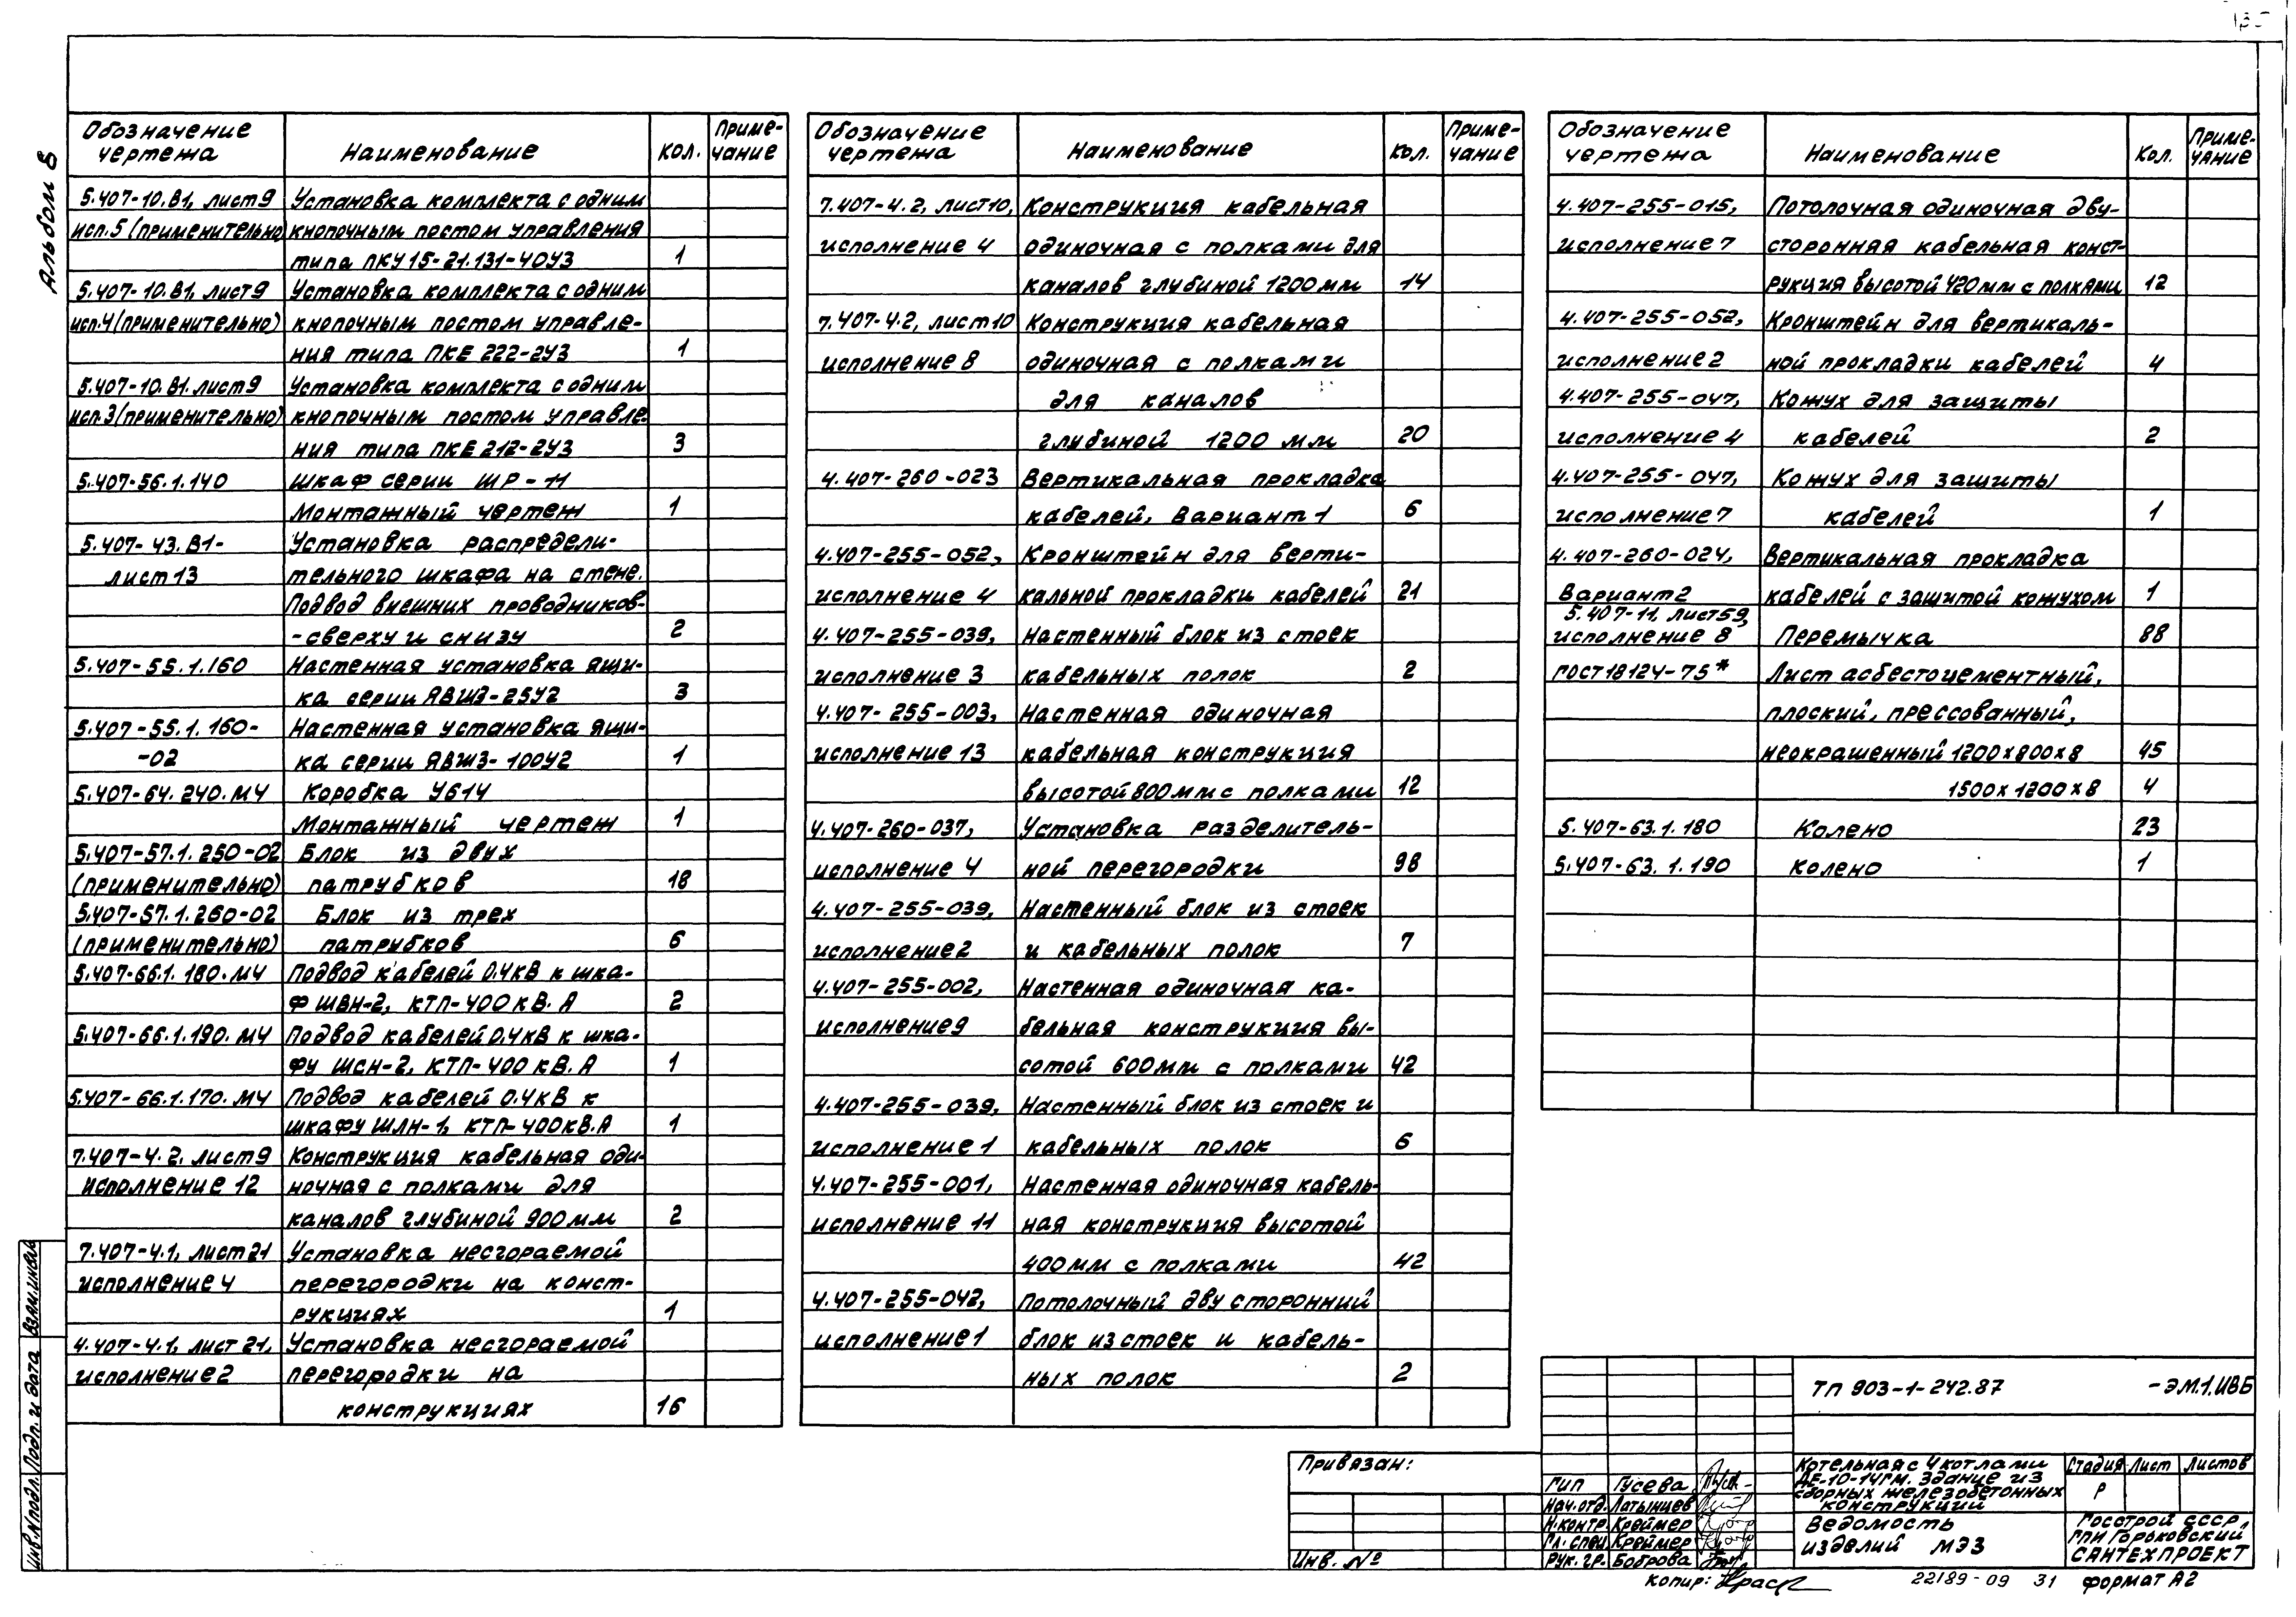 Альбом 8
Обозначение чертежа Наименование Кол. Примечание
5.407-10.В1, лист 9 Установка комплекта с одним
исп.5 (применительно) кнопочным постом управления
типа ПКУ15-21.131-40У3 1
5.407-10.В1, лист 9 Установка комплекта с одним
исп.4 (применительно) кнопочным постом управле-
ния типа ПКЕ 222-2У3 1
5.407-10.В1. лист 9 Установка комплекта с одним
исп.3 (применительно) кнопочным постом управле-
ния типа ПКЕ 212-2У3 3
5.407-56.1.140 Шкаф серии ШР-11
Монтажный чертеж 1
5.407-43.В1- Установка распредели-
лист 13 тельного шкафа на стене.
Подвод внешних проводников-
-сверху и снизу 2
5.407-55.1.160 Настенная установка ящи-
ка серии ЯВШ3-25У2 3
5.407-55.1.160- Настенная установка ящи-
-02 ка серии ЯВШ3-100У2 1
5.407-64.240.МЧ Коробка У614
Монтажный чертеж 1
5.407-57.1.250-02 Блок из двух
(применительно) патрубков 18
5.407-57.1.260-02 Блок из трех
(применительно) патрубков 6
5.407-66.1.180.МЧ Подвод кабелей 0.4кВ к шка-
ф ШВН-2, КТП-400 кВ.А 2
5.407-66.1.190.МЧ Подвод кабелей 0.4кВ к шка-
фу ШСН-2, КТП-400 кВ.А 1
5.407-66.1.170.МЧ Подвод кабелей 0.4кВ к
шкафу ШЛН-1, КТП-400кВ.А 1
7.407-4.2, лист 9 Конструкция кабельная оди-
исполнение 12 ночная с полками для
каналов глубиной 900 мм 2
7.407-4.1, лист 21 Установка несгораемой
исполнение 4 перегородки на конст-
рукциях 1
4.407-4.1, лист 21, Установка несгораемой
исполнение 2 перегородки на
конструкциях 16
Обозначение чертежа Наименование Кол. Примечание
7.407-4.2, лист 10, Конструкция кабельная
исполнение 4 одиночная с полками для
каналов глубиной 1200 мм 14
7.407-4.2, лист 10 Конструкция кабельная
исполнение 8 одиночная с полками
для каналов
глубиной 1200 мм 20
4.407-260-023 Вертикальная прокладка
кабелей, Вариант 1 6
4.407-255-052, Кронштейн для верти-
исполнение 4 кальной прокладки кабелей 21
4.407-255-039, Настенный блок из стоек
исполнение 3 кабельных полок 2
4.407-255-003, Настенная одиночная
исполнение 13 кабельная конструкция
высотой 800 мм с полками 12
4.407-260-037, Установка разделитель-
исполнение 4 ной перегородки 98
4.407-255-039, Настенный блок из стоек
исполнение 2 и кабельных полок 7
4.407-255-002, Настенная одиночная ка-
исполнение 9 бельная конструкция вы-
сотой 600 мм с полками 42
4.407-255-039, Настенный блок из стоек и
исполнение 1 кабельных полок 6
4.407-255-001, Настенная одиночная кабель-
исполнение 11 ная конструкция высотой
400 мм с полками 42
4.407-255-042, Потолочный двусторонний
исполнение 1 блок из стоек и кабель-
ных полок 2
Обозначение чертежа Наименование Кол. Примечание
4.407-255-015, Потолочная одиночная дву-
исполнение 7 сторонняя кабельная конст-
рукция высотой 420 мм с полками 12
4.407-255-052, Кронштейн для вертикаль-
исполнение 2 ной прокладки кабелей 4
4.407-255-047, Кожух для защиты
исполнение 4 кабелей 2
4.407-255-047, Кожух для защиты
исполнение 7 кабелей 1
4.407-260-024, Вертикальная прокладка
Вариант 2 кабелей с защитой кожухом 1
5.407-11, лист 59,
исполнение 8 Перемычка 88
ГОСТ 18124-75* Лист асбестоцементный,
плоский, прессованный,
неокрашенный 1200х800х8 45
1500х1200х8 4
5.407-63.1.180 Колено 23
5.407-63.1.190 Колено 1
Взам.инв.№
Подп. и дата
Инв.№подл.
Привязан:
Инв. №
ГИП Гусева
Нач.отд. Латынцев
Н.контр. Креймер
Гл.спец Креймер
Рук.гр. Боброва
ТП 903-1-242.87 -ЭМ.1.ИВБ
Котельная с 4 котлами
ДЕ-10-14ГМ. Здание из
сборных железобетонных
конструкций
Стадия Лист Листов
Р
Ведомость
изделий МЭЗ
Госстрой СССР
ГПИ Горьковский
САНТЕХПРОЕКТ
Копир:
22189-09 31 формат А2